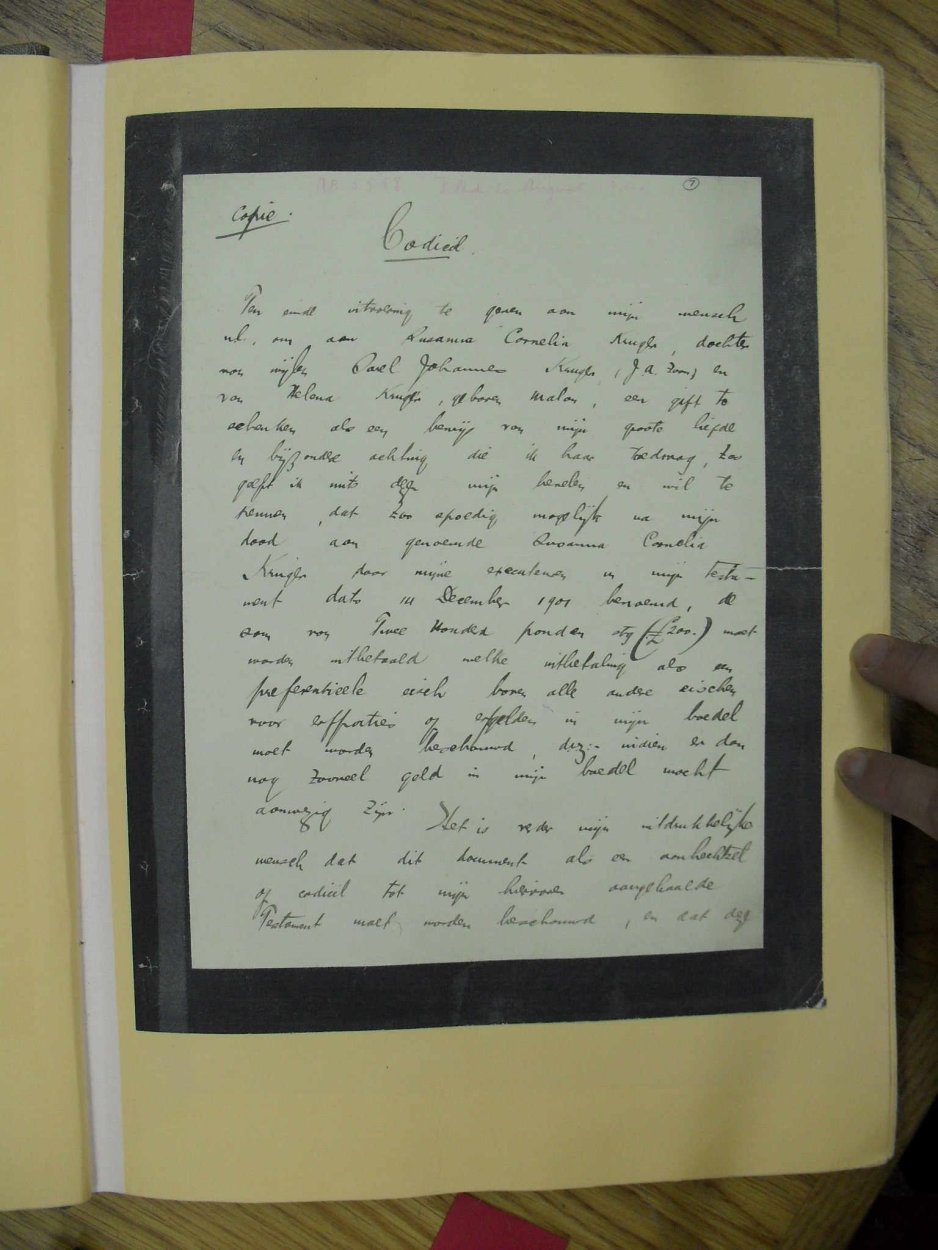 (1)
Copie.
Codicil
Ten einde uitvoering te geven aan mijn wensch
nl., om aan Susanna Cornelia Kruger, dochter
van wijlen Carel Johannes Kruger, (J.A. Zoon) en
van Helena Kruger, geboren Malan, een gift te
schenken als een bewijs van mijn groote liefde
en bijzondere achting die ik haar toedraag, Zoo
geeft ik mits dezen mijn bevelen en wil te
kennen, dat Zoo spoedig mogelijk na mijn
dood aan genoemde Susanna Cornelia
Kruger door mijne executeuren in mijn Testa-
ment dato 14 December 1901 benoemd, de
som van Twee Honderd ponden stg (£200.) moet
worden uitbetaald welke uitbetaling als een
preferentieele eisch boven alle andere eischen
voor erfporties of erfgelden in mijn boedel
moet worden beschouwd, dez:- indien er dan
nog Zooveel geld in mijn boedel mocht
aanwezig Zijn. Het is verder mijn uitdrukkelijke
wensch dat dit document als een aanhechtsel
of codicil tot mijn hiervoren aangehaalde
Testament moet worden beschouwd, en dat dez